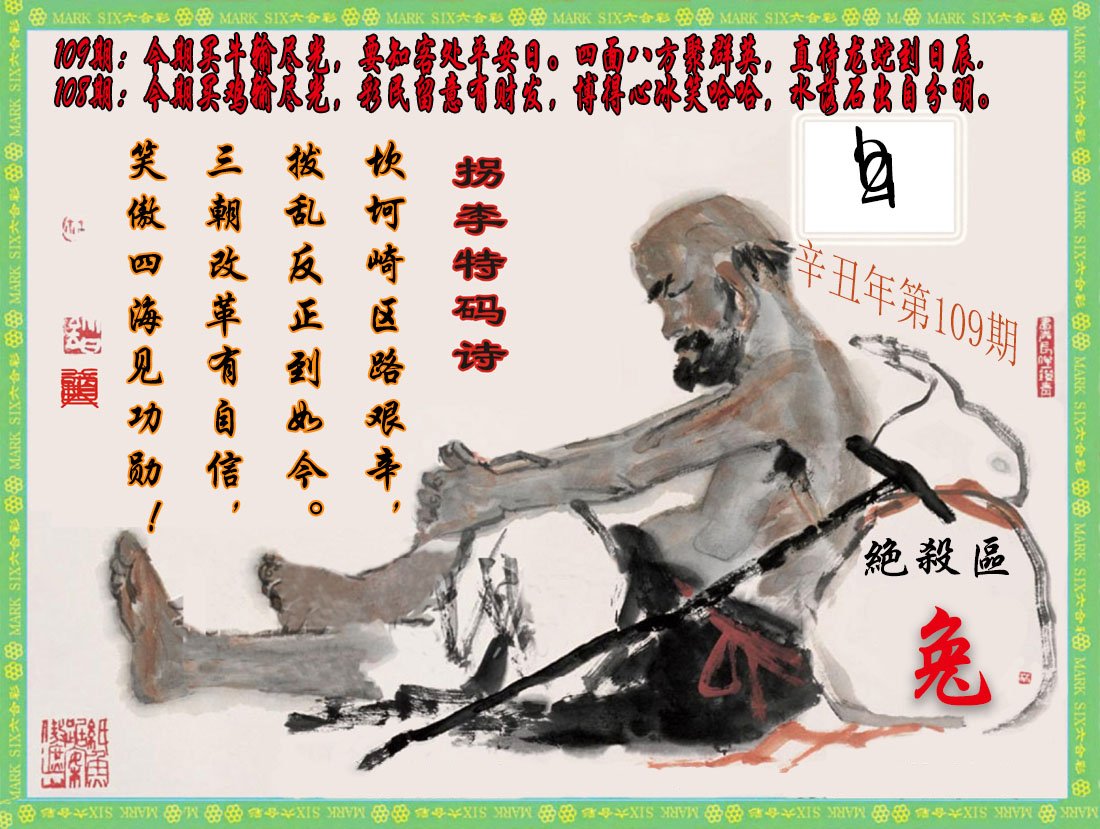 MARK SIX六合彩
109期：今期买牛输尽光，要知客处羊安日。四面八方聚群英，直待龙蛇到日辰.
108期：今期买鸡输尽光，彩民留意有财发，博得心冰笑哈哈，水落石出自分明。
拐李特码诗
坎坷崎区路艰辛，
拨乱反正到如今。
三朝改革有自信，
笑傲四海见功勋！
辛丑年第109期
絕殺區
兔